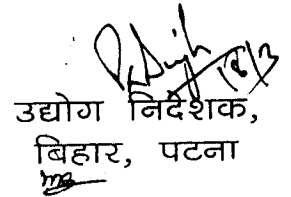 18/3
उद्योग निदेशक,
बिहार, पटना